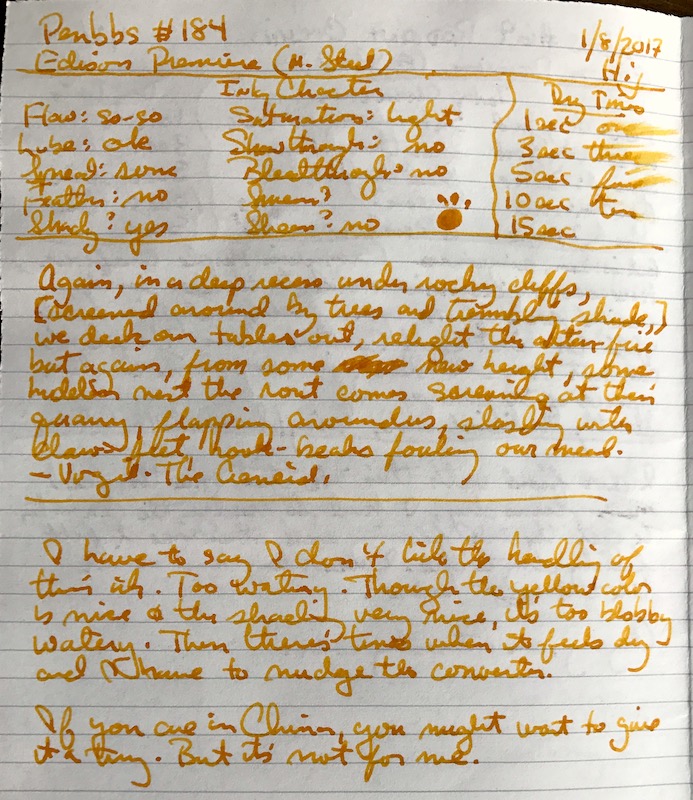 Penbbs #184
1/8/2017
Edison Premiere (M. Steel)
Hi
Ink Character
Dry Times
Flow: so-so
Saturation: light
1 sec one
Lube: ok
Showthrough: no
3 sec three
Spread: some
Bleedthrough: no
5 sec five
Feather: no
Smear?
10 sec ten
Shady? yes
Sheen? no
15 sec
Again, in a deep recess under rocky cliffs,
[screened around by trees and trembling shade,]
we deck our tables out, relight the altar fire
but again, from some new height, some
hidden nest the rout comes screaming at their
quarry, flapping around us, slashing with
claw-feet hook-beaks fouling our meal.
- Virgil. The Aeneid.
I have to say I don't like the handling of
this ink. Too watery. Though the yellow color
is nice & the shading very nice, it's too blobby
watery. Then there's times when it feels dry
and I have to nudge the converter.
If you are in China, you might want to give
it a try. But it's not for me.